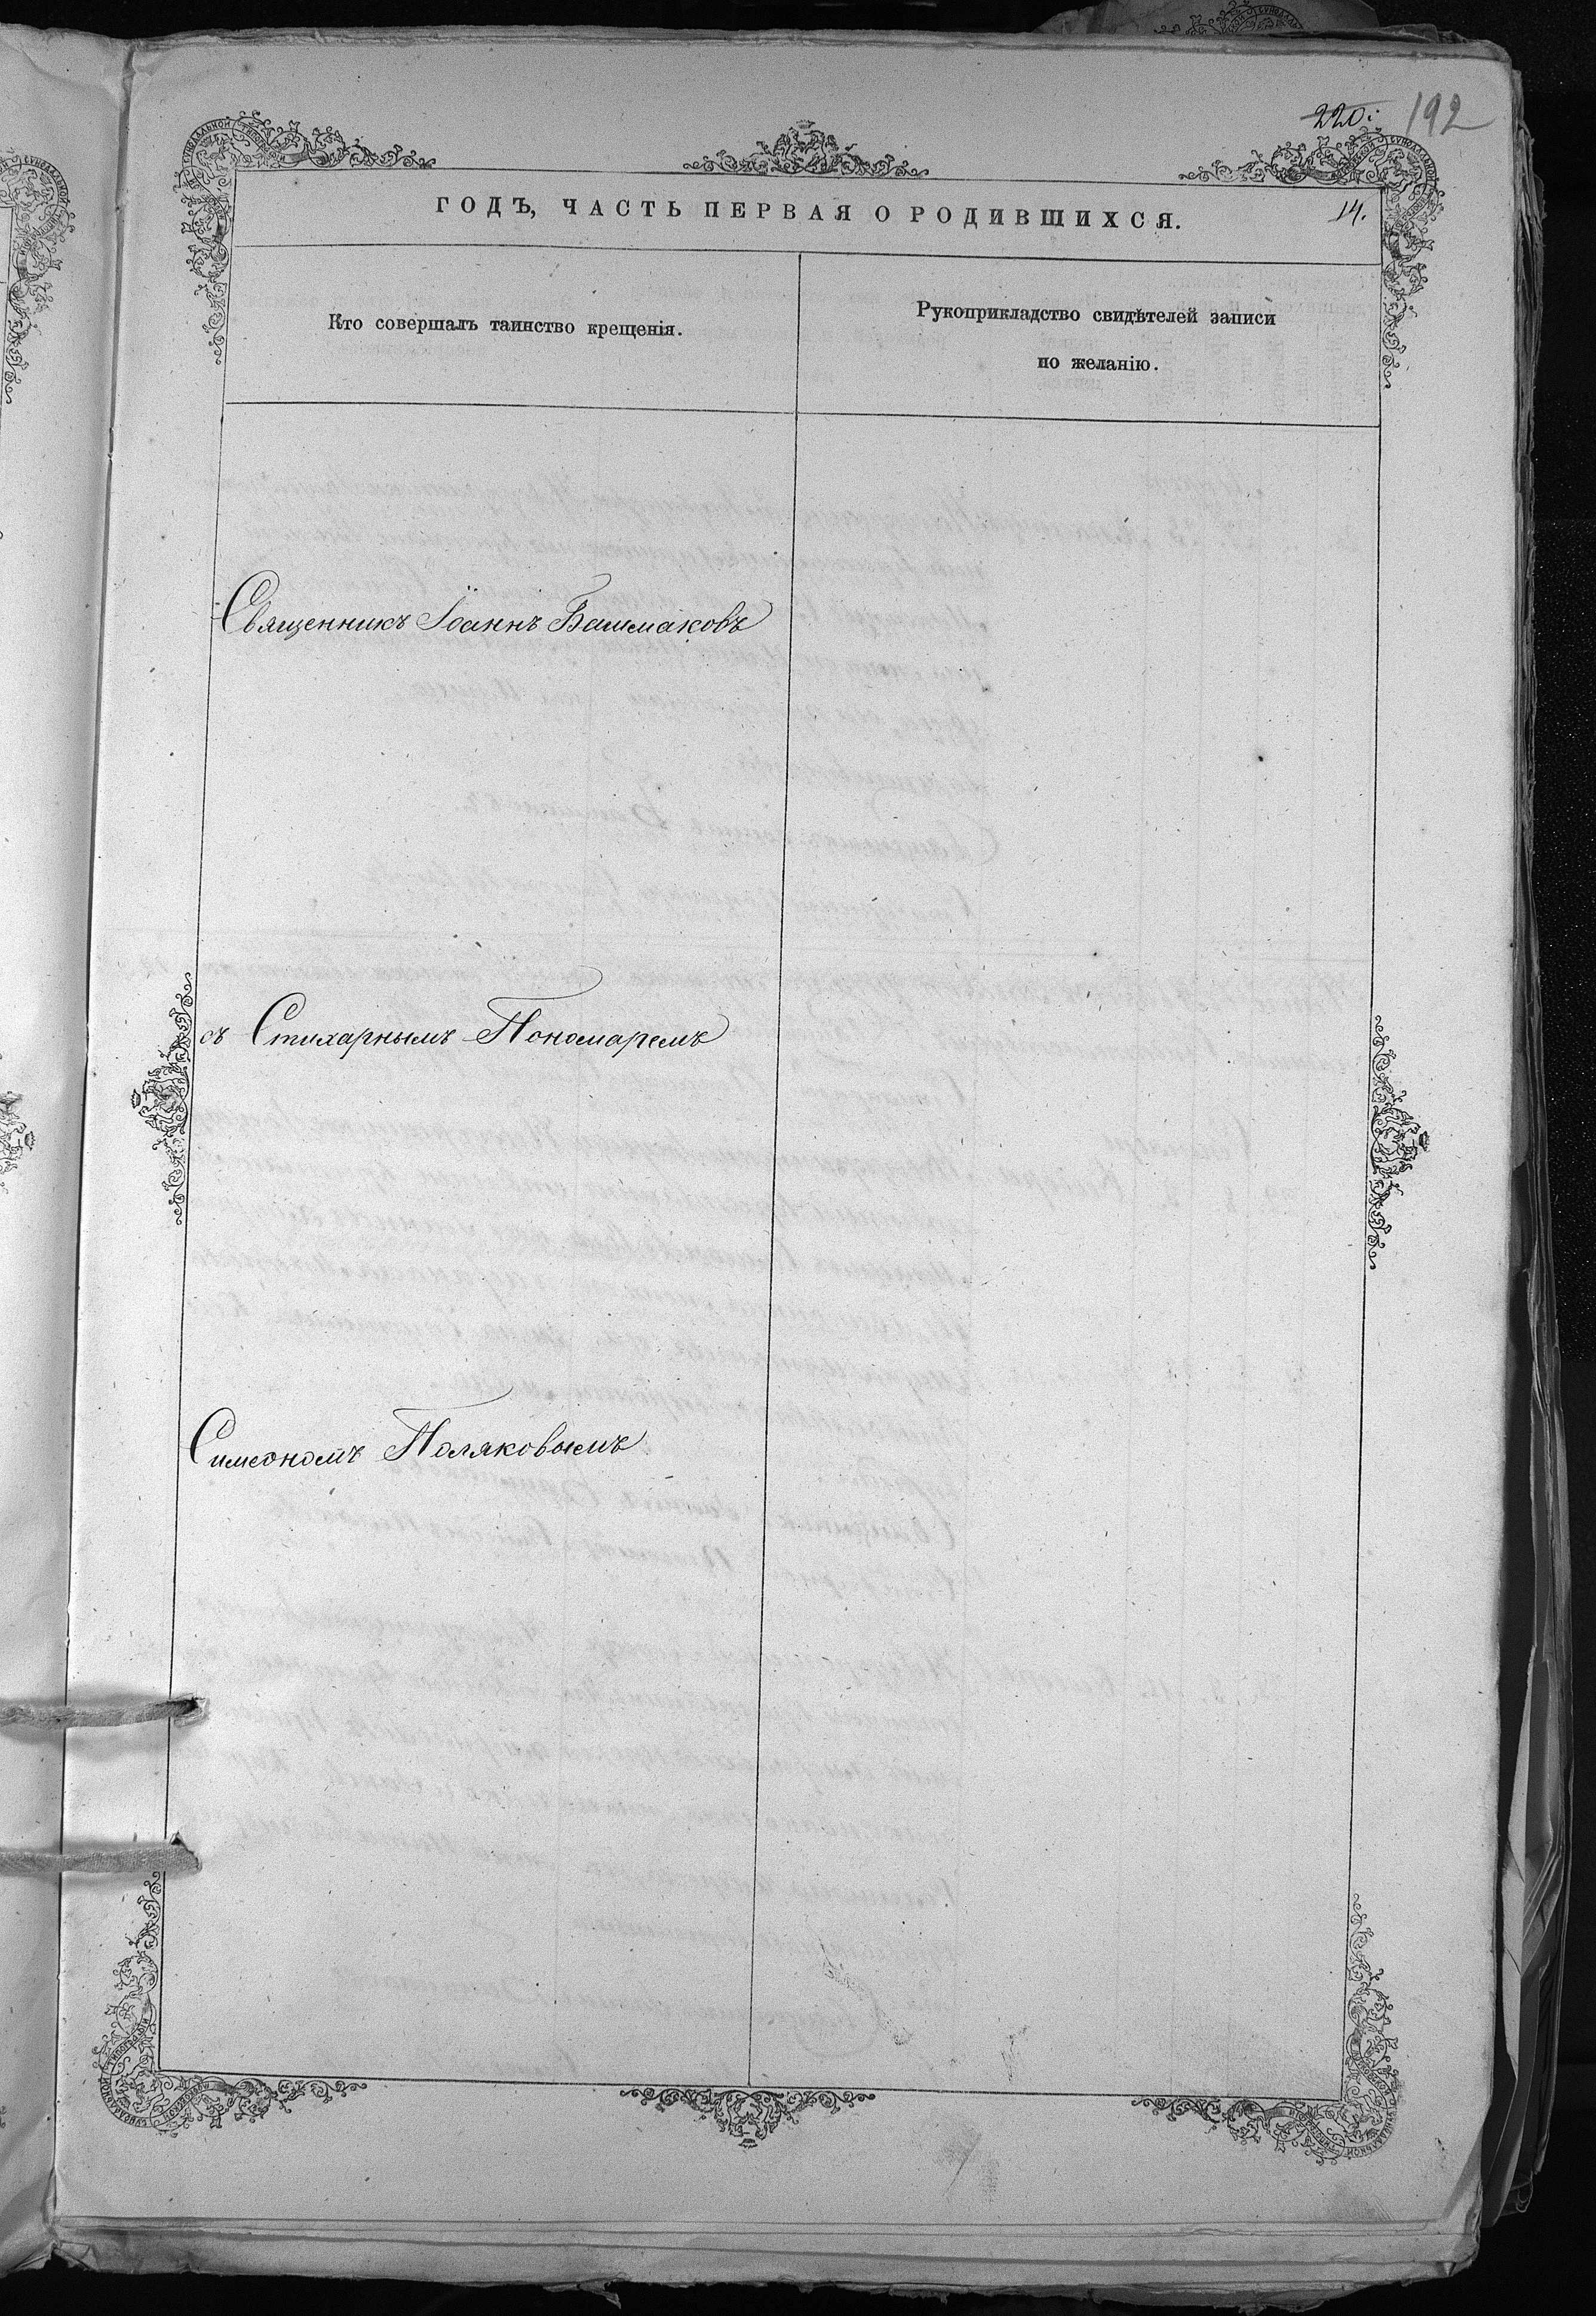 220. 192
ГОДЪ, ЧАСТЬ ПЕРВАЯ О РОДИВШИХСЯ. 14.
Кто совершалъ таинство крещенія.
Рукоприкладство свидѣтелей записи
по желанію.
Священникъ Іоаннъ Башмаковъ
съ Стихарнымъ Пономаремъ
Симеономъ Поляковымъ